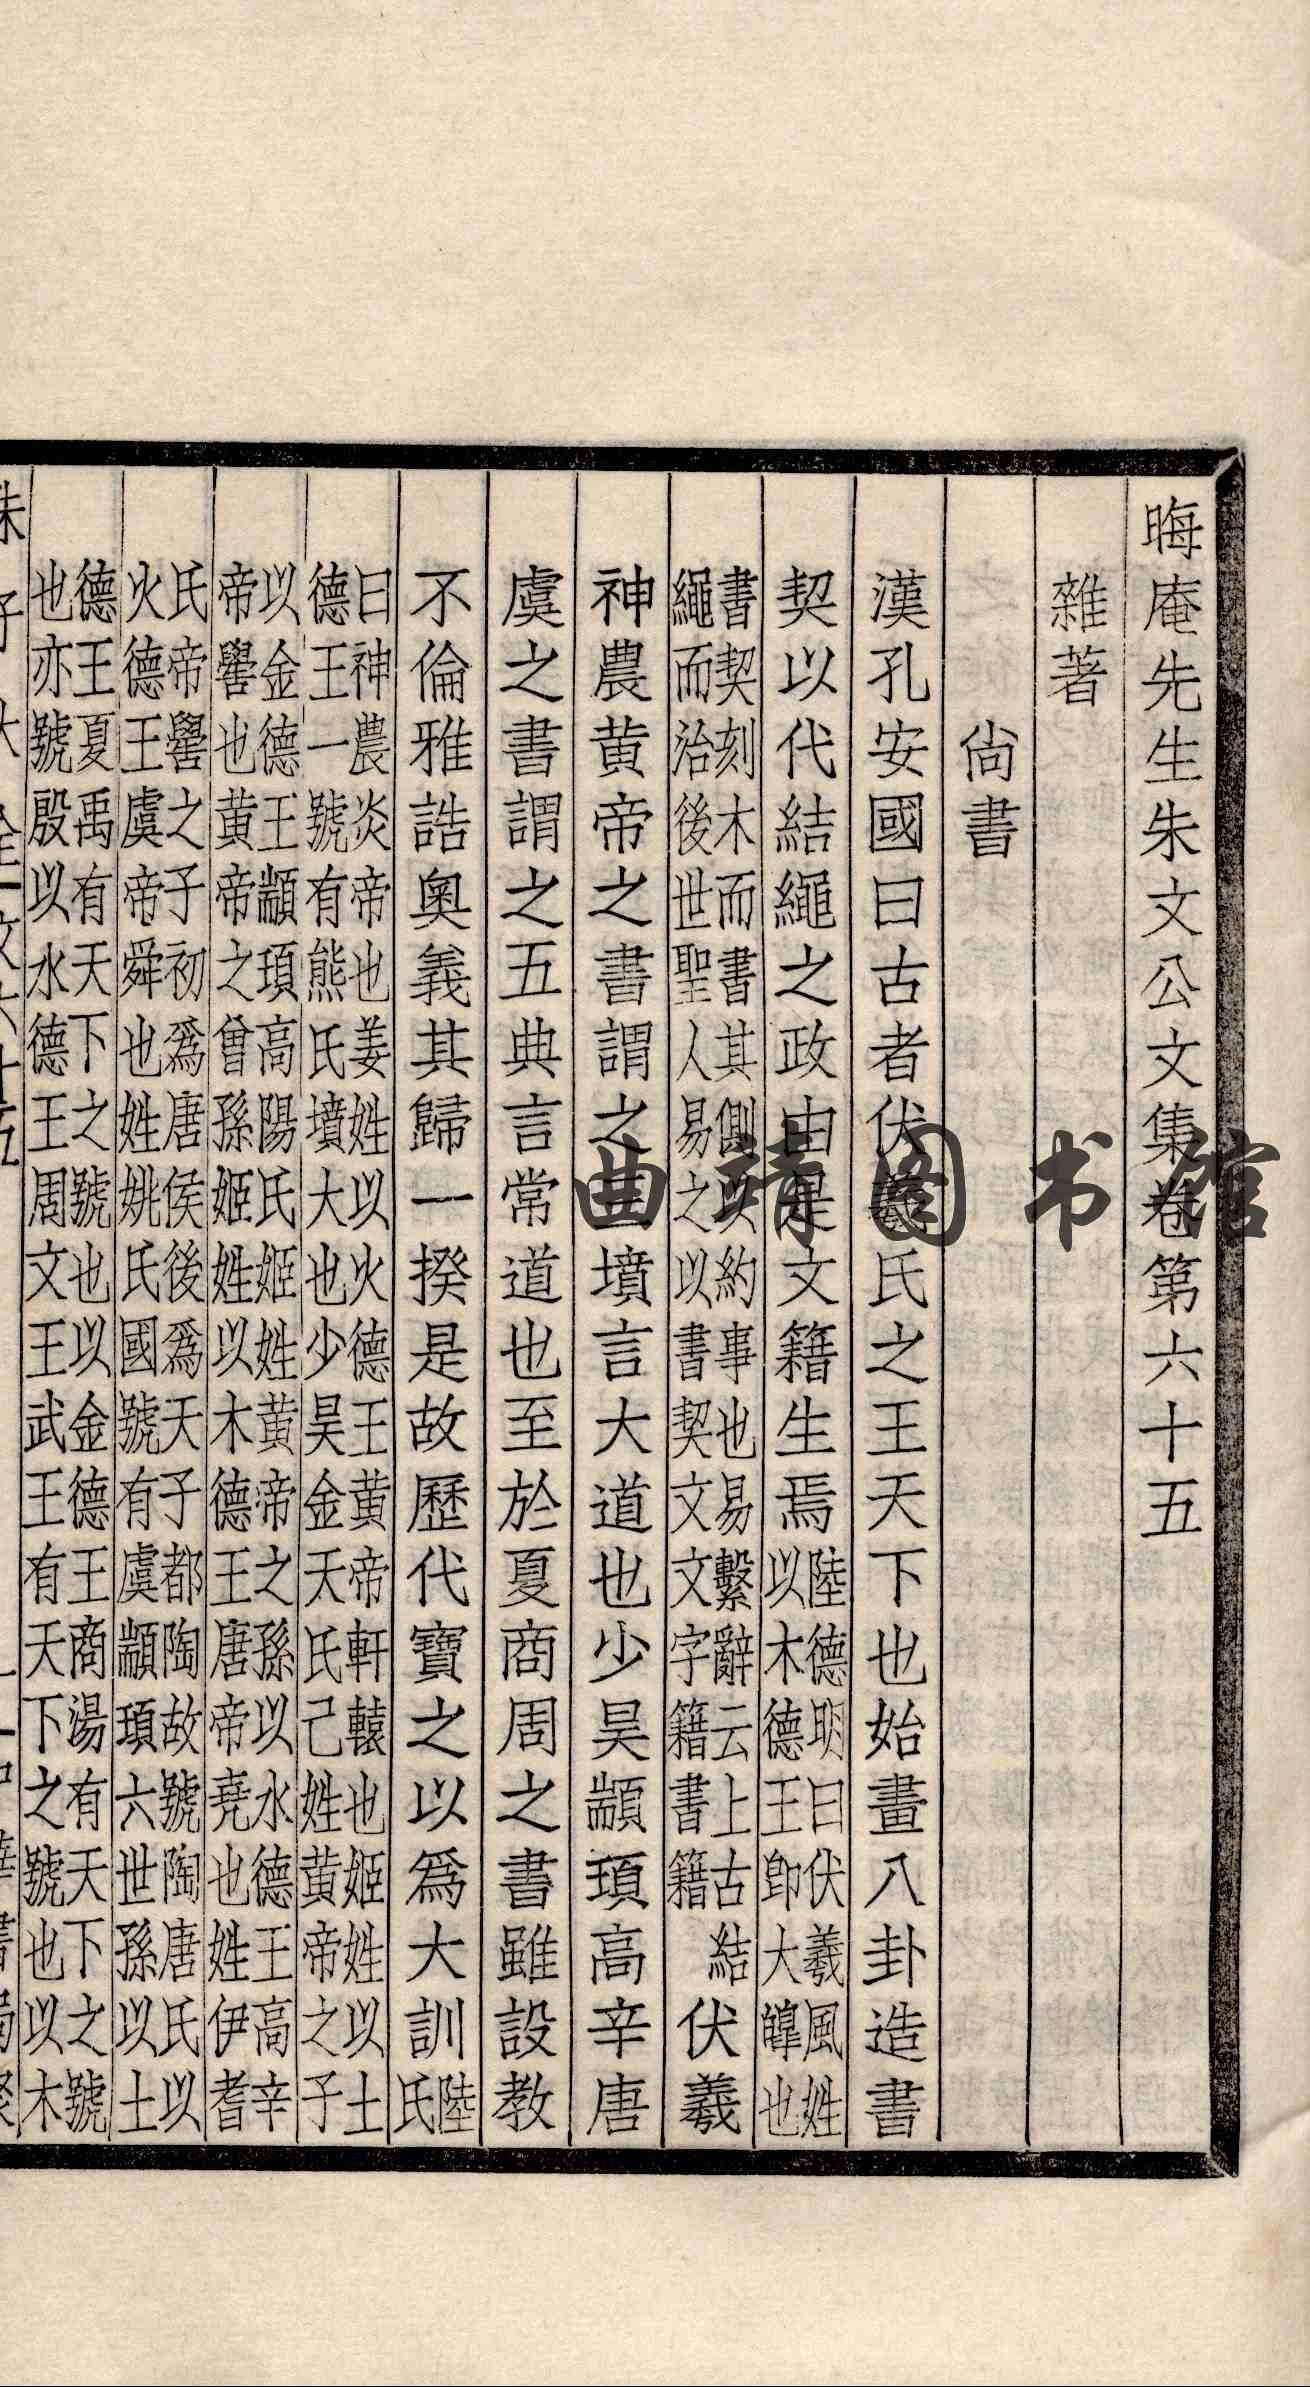 晦庵先生朱文公文集卷第六十五
雜著
尚書
漢孔安國曰古者伏羲氏之王天下也始畫八卦造書
契以代結繩之政由是文籍生焉陸德明曰伏羲風姓以木德王即大皥也
書契刻木而書其側以約事也易繫辭云上古結繩而治後世聖人易之以書契文文字籍書籍伏羲
神農黃帝之書謂之三墳言大道也少昊顓頊高辛唐
虞之書謂之五典言常道也至於夏商周之書雖設教
不倫雅誥奧義其歸一揆是故歷代寶之以爲大訓陸氏
曰神農炎帝也姜姓以火德王黃帝軒轅也姬姓以土
德王一號有熊氏墳大也少昊金天氏己姓黃帝之子
以金德王顓頊高陽氏姬姓黃帝之孫以水德王高辛
帝嚳也黃帝之曾孫姬姓以木德王唐帝堯也姓伊耆
氏帝嚳之子初爲唐侯後爲天子都陶故號陶唐氏以
火德王虞帝舜也姓姚氏國號有虞顓頊六世孫以土
德王夏禹有天下之號也以金德王商湯有天下之號
也亦號殷以水德王周文王武王有天下之號也以木
曲靖图书馆